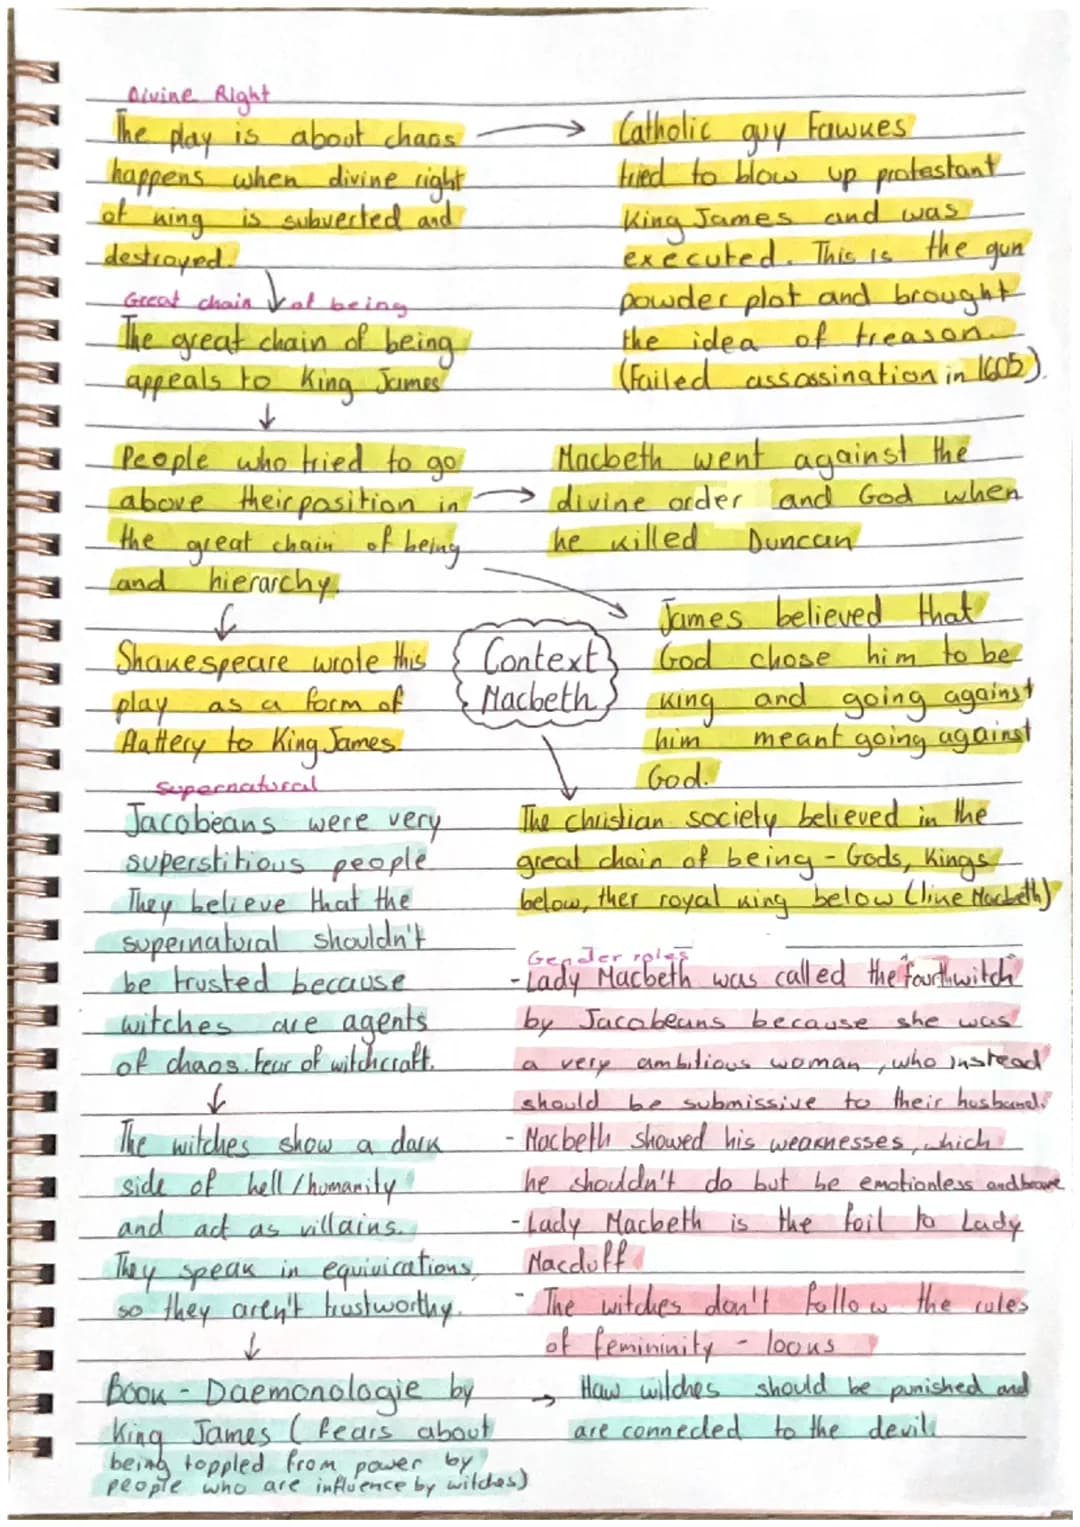 Divine Right
The play is about chaos
happens when divine right
of king is subverted and
destroyed.
Catholic guy Fawkes
tried to blow up protestant
King James and was
executed. This is the gun
powder plot and brought
the idea of treason.
(Failed assassination in 1605).
Great chain of being
The great chain of being
appeals to King James
People who tried to go
above their position in
the great chain of being
and hierarchy.
Macbeth went against the
divine order and God when
he killed Duncan
James believed that
God chose him to be
king and going against
him meant going against
God.
Shakespeare wrote this
play as a form of
flattery to King James.
Context
Macbeth
The christian society believed in the
great chain of being - Gods, Kings
below, ther royal king below (like Macbeth)
Supernatural
Jacobeans were very
superstitious people
They believe that the
supernatural shouldn't
be trusted because
witches are agents
of chaos. Fear of witchcraft.
The witches show a dark
side of hell/humanity
and act as villains.
They speak in equivications,
so they aren't trustworthy.
Gender roles
- Lady Macbeth was called the "fourth witch"
by Jacobeans because she was
a very ambitious woman, who instead
should be submissive to their husband.
- Macbeth showed his weaknesses, which
he shouldn't do but be emotionless and brave
- Lady Macbeth is the foil to Lady
Macduff
- The witches don't follow the rules
of femininity - looks
Book - Daemonologie by
King James (fears about
being toppled from power by
people who are influence by witches)
How witches should be punished and
are connected to the devil.